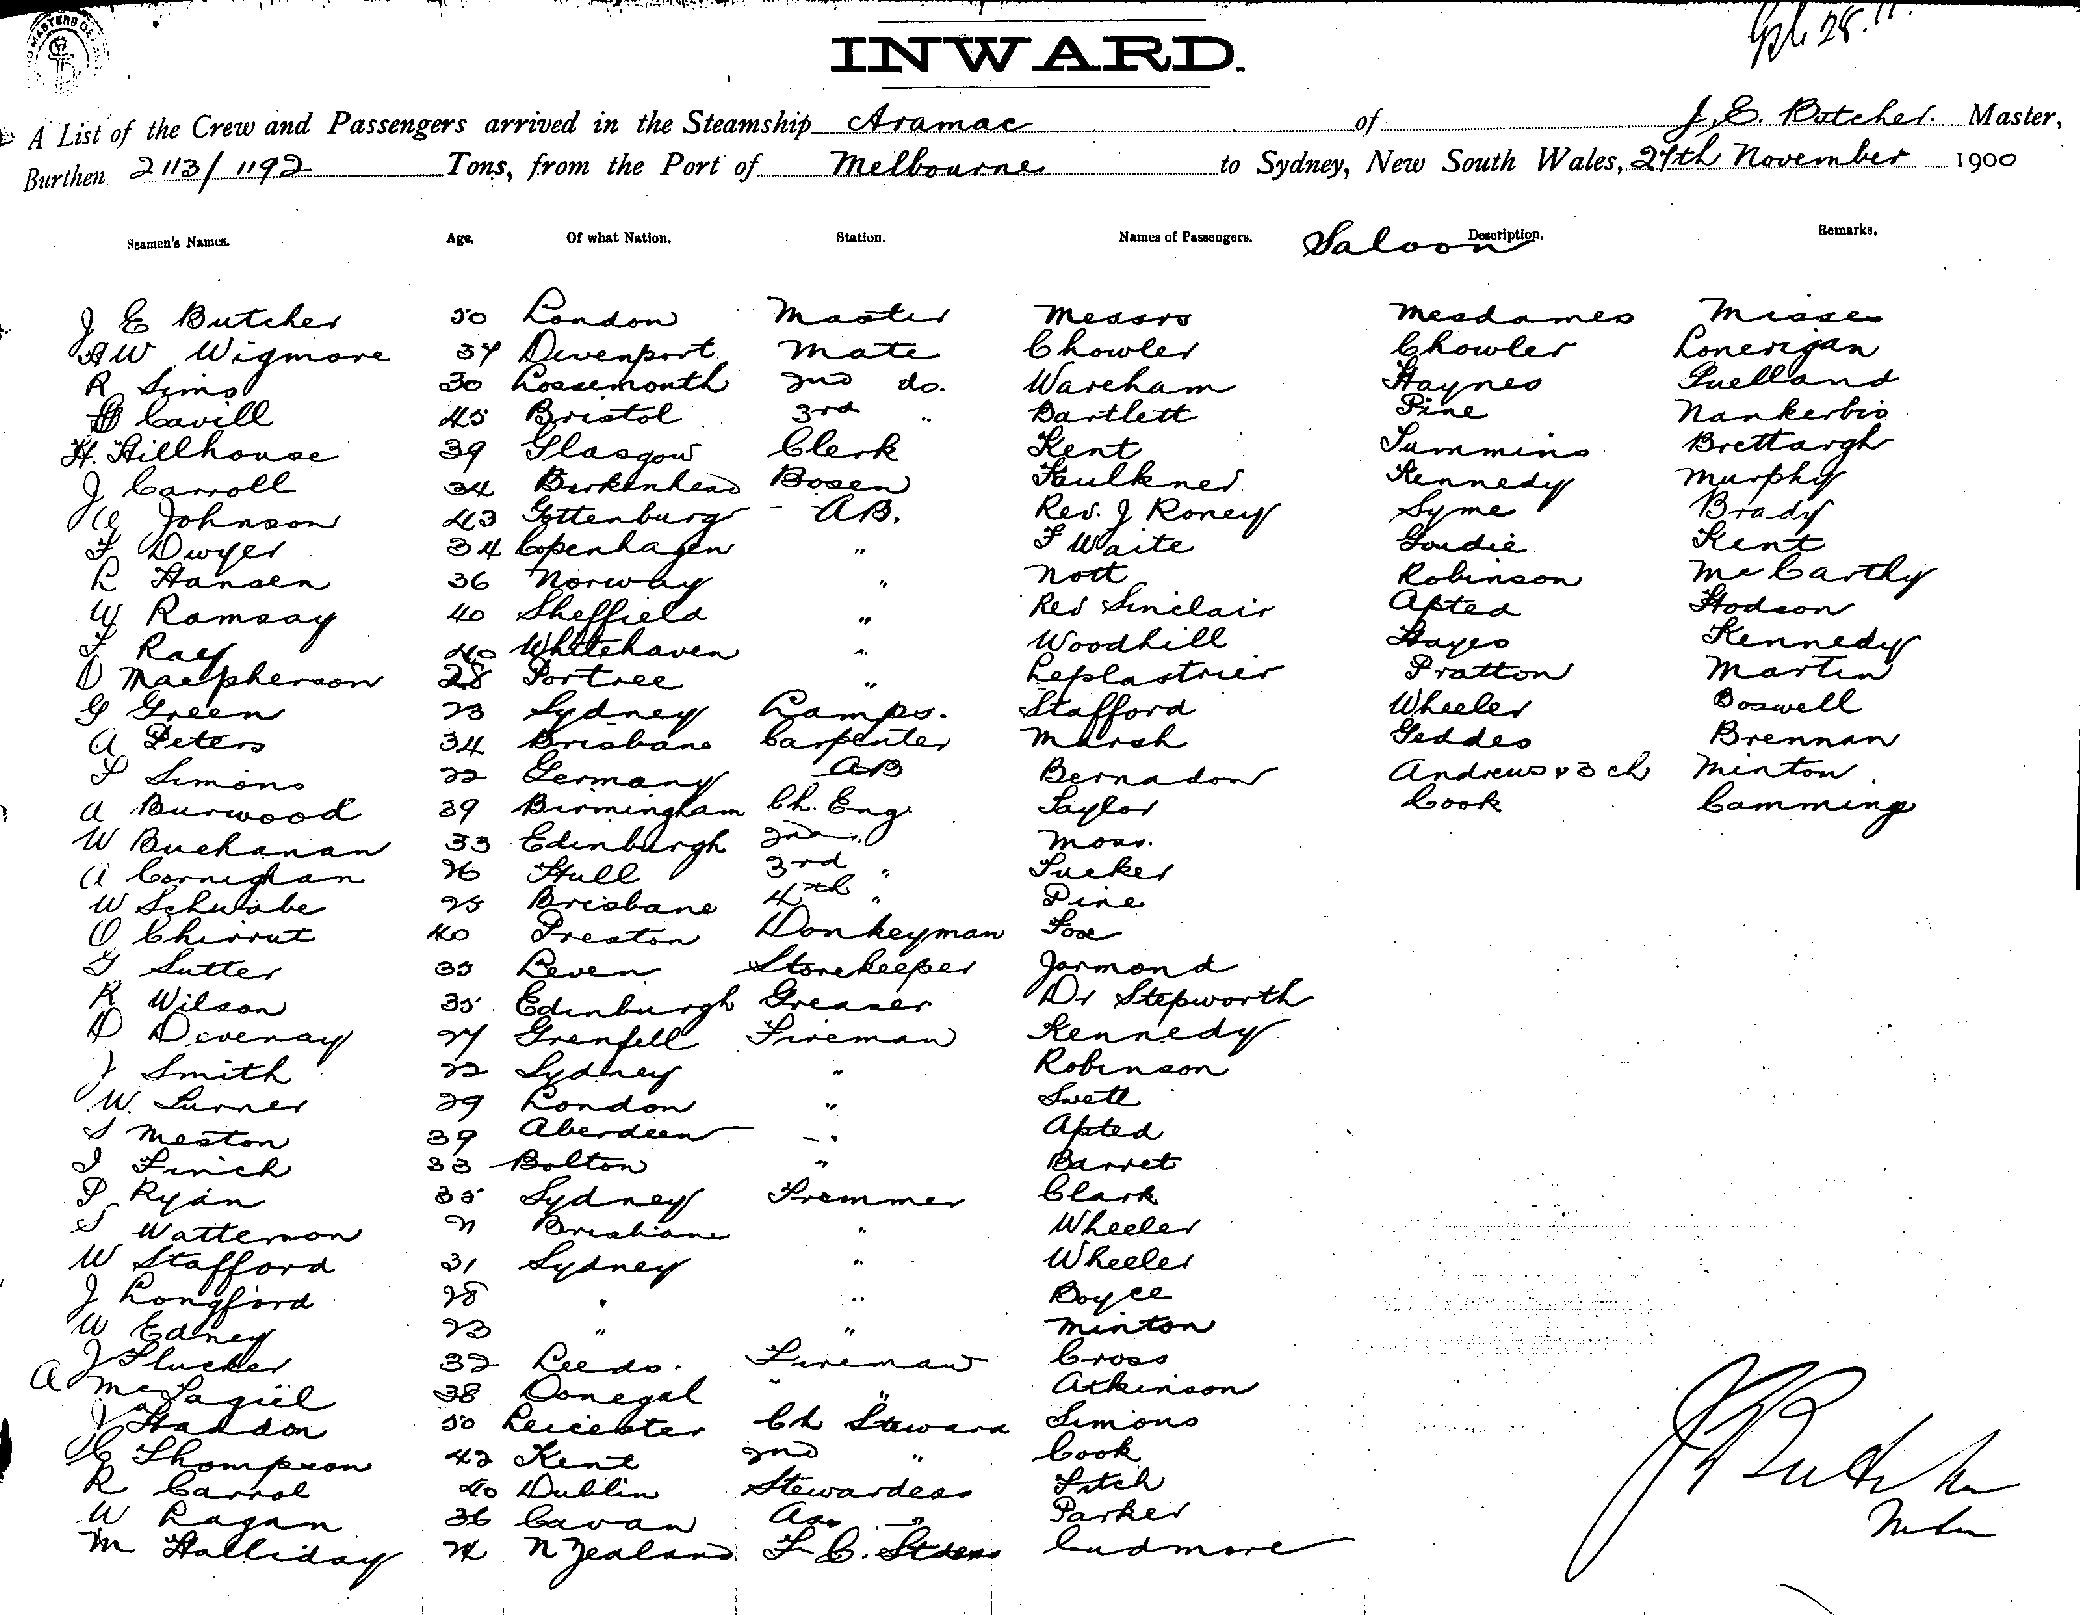 INWARD.
A List of the Crew and Passengers arrived in the Steamship Aramac of J. E. Butcher. Master,
Burthen 2113/1192 Tons, from the Port of Melbourne to Sydney, New South Wales, 27th November 1900
Seamen's Names. Age. Of what Nation. Station. Names of Passengers. Saloon Description. Remarks.
J E Butcher 50 London Master Messrs Mesdames Misses
AW Wigmore 37 Devenport Mate Chowler Chowler Lonerigan
R Sims 30 Lossemouth 2nd do. Wareham Haynes Guelland
Cavill 45 Bristol 3rd " Bartlett Pine Nankerbis
H. Hillhouse 39 Glasgow Clerk Kent Tummins Brettargh
J Carroll 34 Berkenhead Bosen Faulkner Kennedy Murphy
Johnson 43 Gottenburg AB. Rev. J Roney Syme Brady
F Dwyer 34 Copenhagen " F Waite Goudie Kent
R Hansen 36 Norway " Nott Robinson McCarthy
W Ramsay 40 Sheffield " Rev Sinclair Apted Hodson
F Ray 40 Whitehaven " Woodhill Hayes Kennedy
D Macpherson 28 Portree " Leplastrier Pratton Martin
G Green 23 Sydney Lamps. Stafford Wheeler Boswell
A Peters 34 Brisbane Carpenter Marsh Geddes Brennan
F Simons 22 Germany AB Bernadon Andrews & 3 ch Minton
A Burwood 39 Birmingham Ch. Eng. Taylor Cook Camming
W Buchanan 33 Edinburgh 2nd " Moss.
A Cornighan 26 Hull 3rd " Tucker
W Schwabe 25 Brisbane 4th " Pine
O Chirrut 40 Preston Donkeyman Fox
G Sutter 35 Leven Storekeeper Jormond
R Wilson 35 Edinburgh Greaser Dr Stepworth
D Devenay 27 Grenfell Fireman Kennedy
J Smith 22 Sydney " Robinson
W. Turner 29 London " Swett
S Meston 39 Aberdeen " Apted
J Finch 33 Bolton " Barret
P Ryan 35 Sydney Tremmer Clark
S Watterson 21 Brisbane " Wheeler
W Stafford 31 Sydney " Wheeler
J Longford 28 " " Boyce
W Edney 23 " " Minton
J Flucker 32 Leeds. Fireman Cross
A 38 Donegal " " Atkinson
J Haddon 50 Leicester Ch Steward Simons
Thompson 42 Kent 2nd " Cook
R Carrol 40 Dublin Stewardess Fitch
W Ragan 36 Cavan Ass " Parker
M Halliday 24 N Zealand F. C. Cudmore